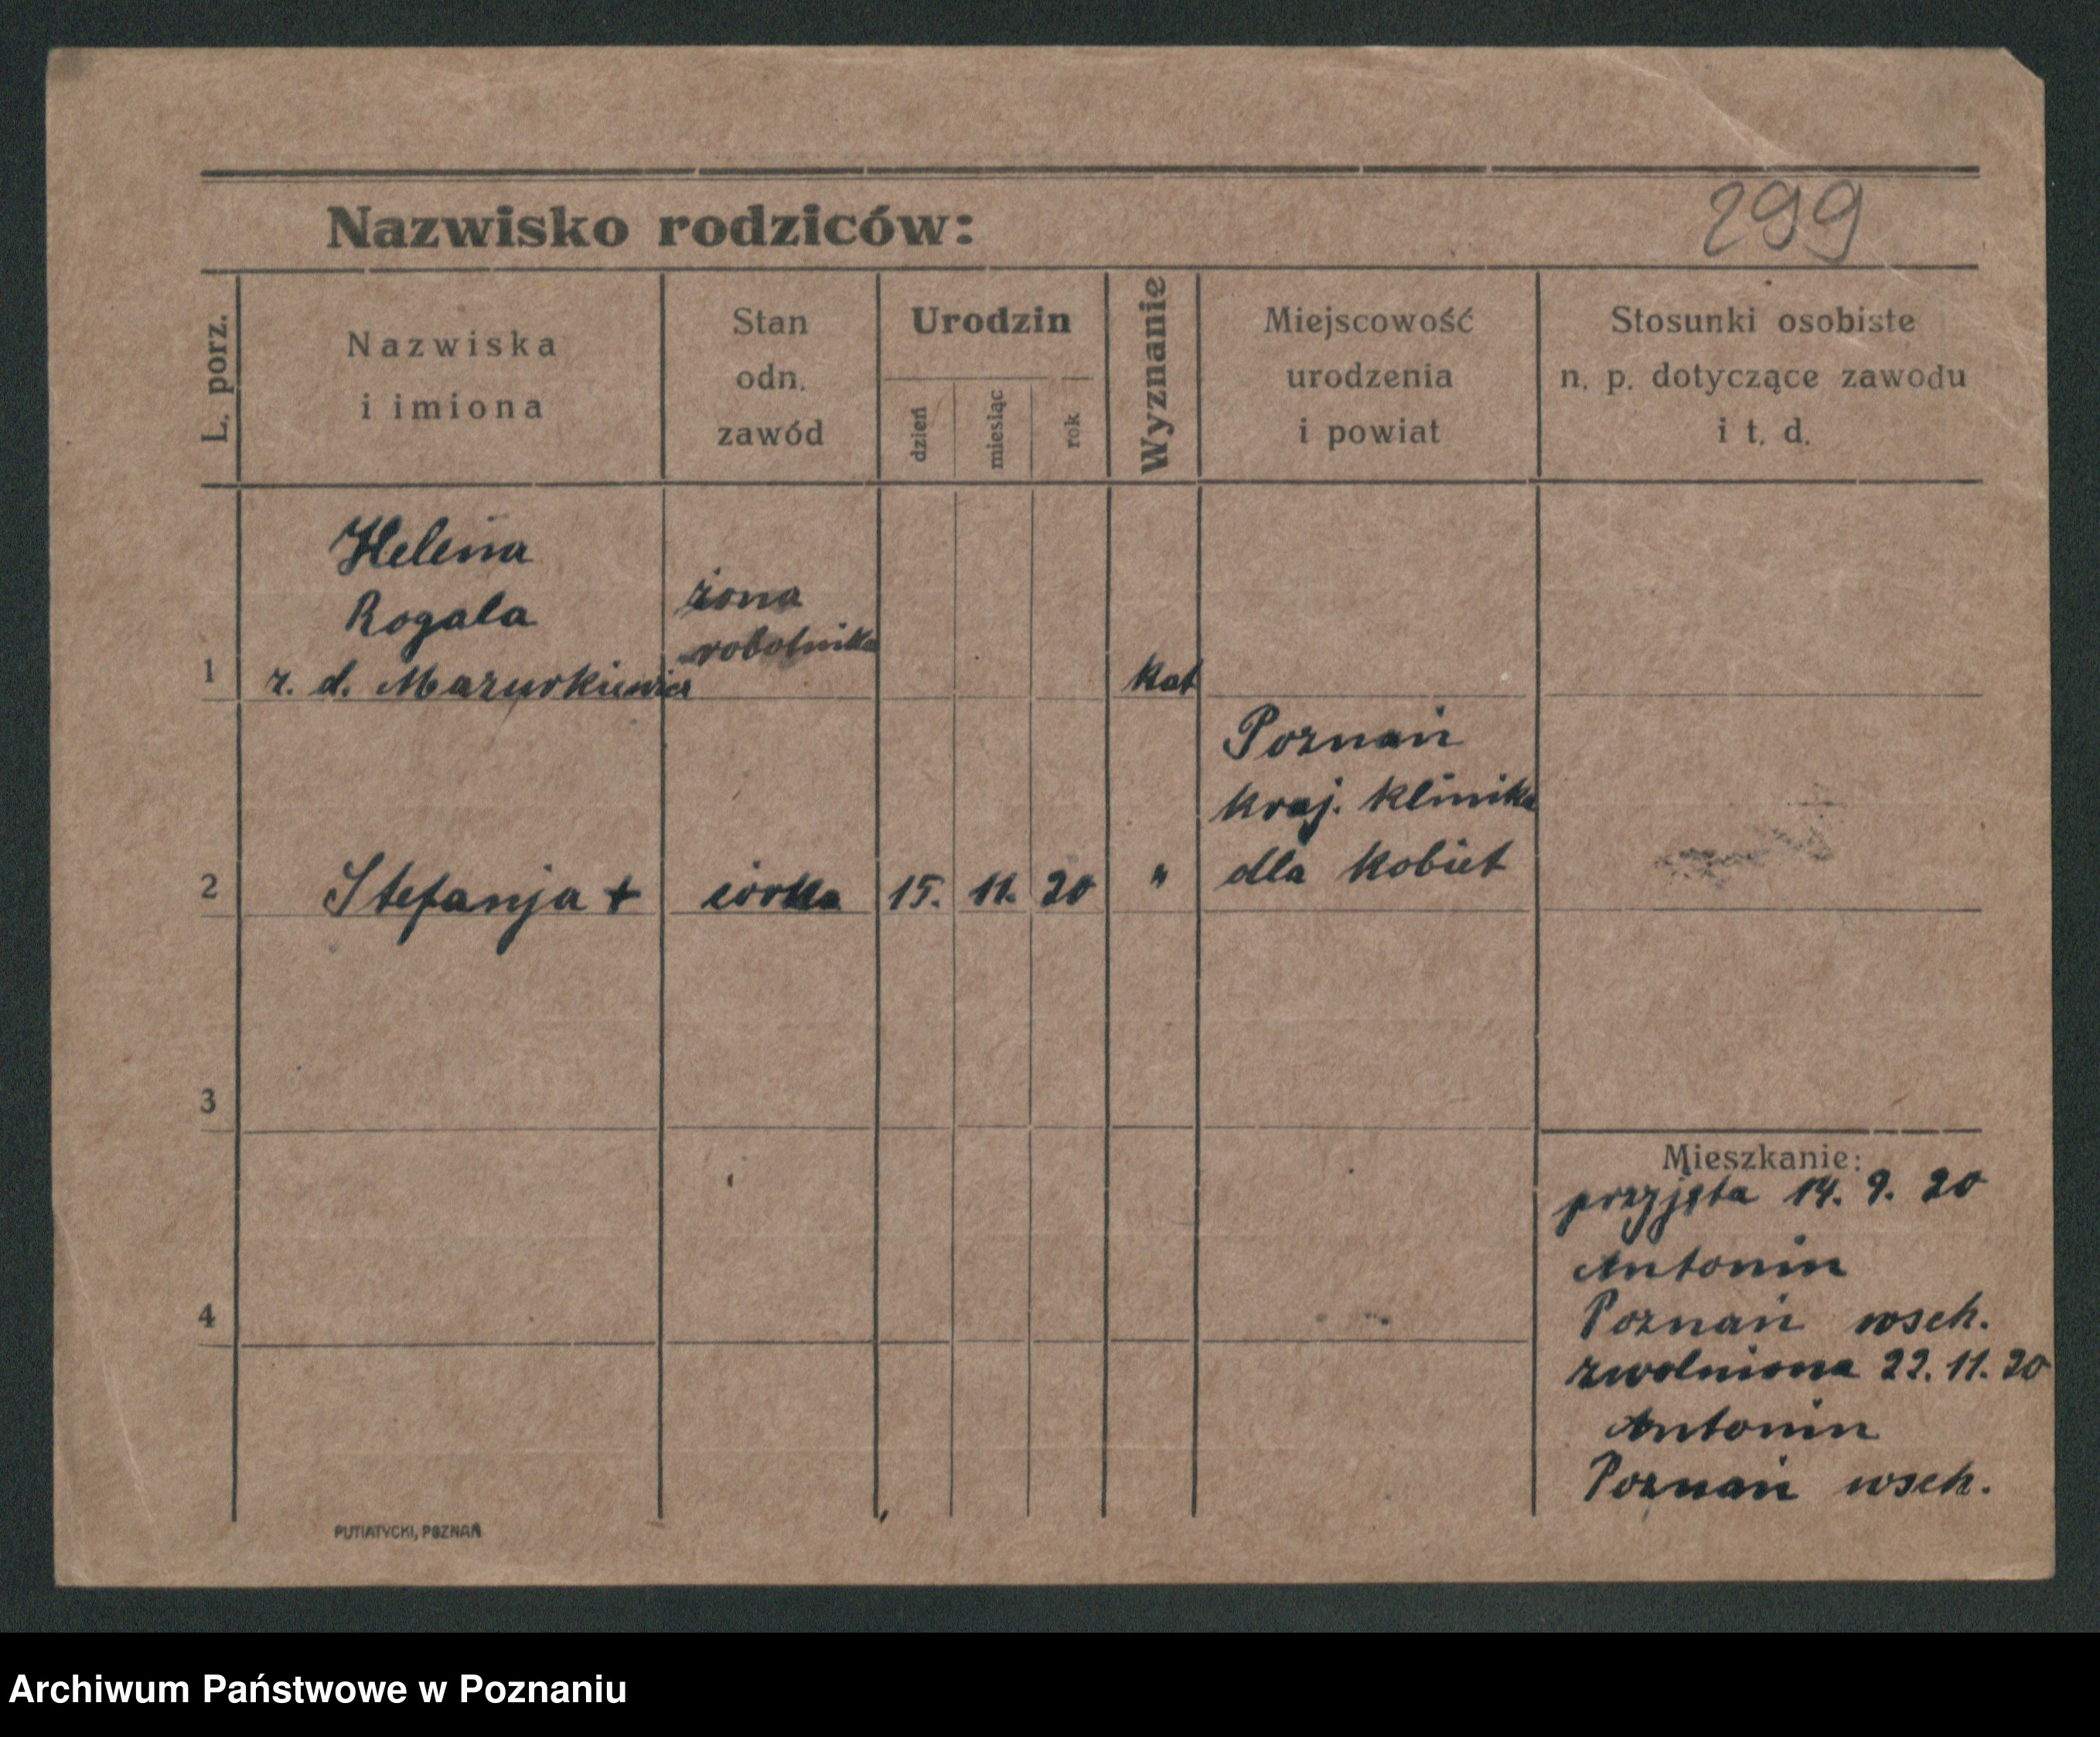 299
Nazwisko rodziców:
L. porz.
Nazwiska
i imiona
Stan
odn.
zawód
Urodzin
dzień
miesiąc
rok
Wyznanie
Miejscowość
urodzenia
i powiat
Stosunki osobiste
n. p. dotyczące zawodu
i t. d.
1
Helena
Rogala
z. d. Mazurkiewicz
żona
robotnika
kat
2
Stefanja +
córka
15. 11. 20
"
Poznań
kraj. klinika
dla kobiet
3
4
Mieszkanie:
przyjęta 14. 9. 20
Antonin
Poznań wsch.
zwolniona 22. 11. 20
Antonin
Poznań wsch.
PUTIATYCKI, POZNAŃ
Archiwum Państwowe w Poznaniu